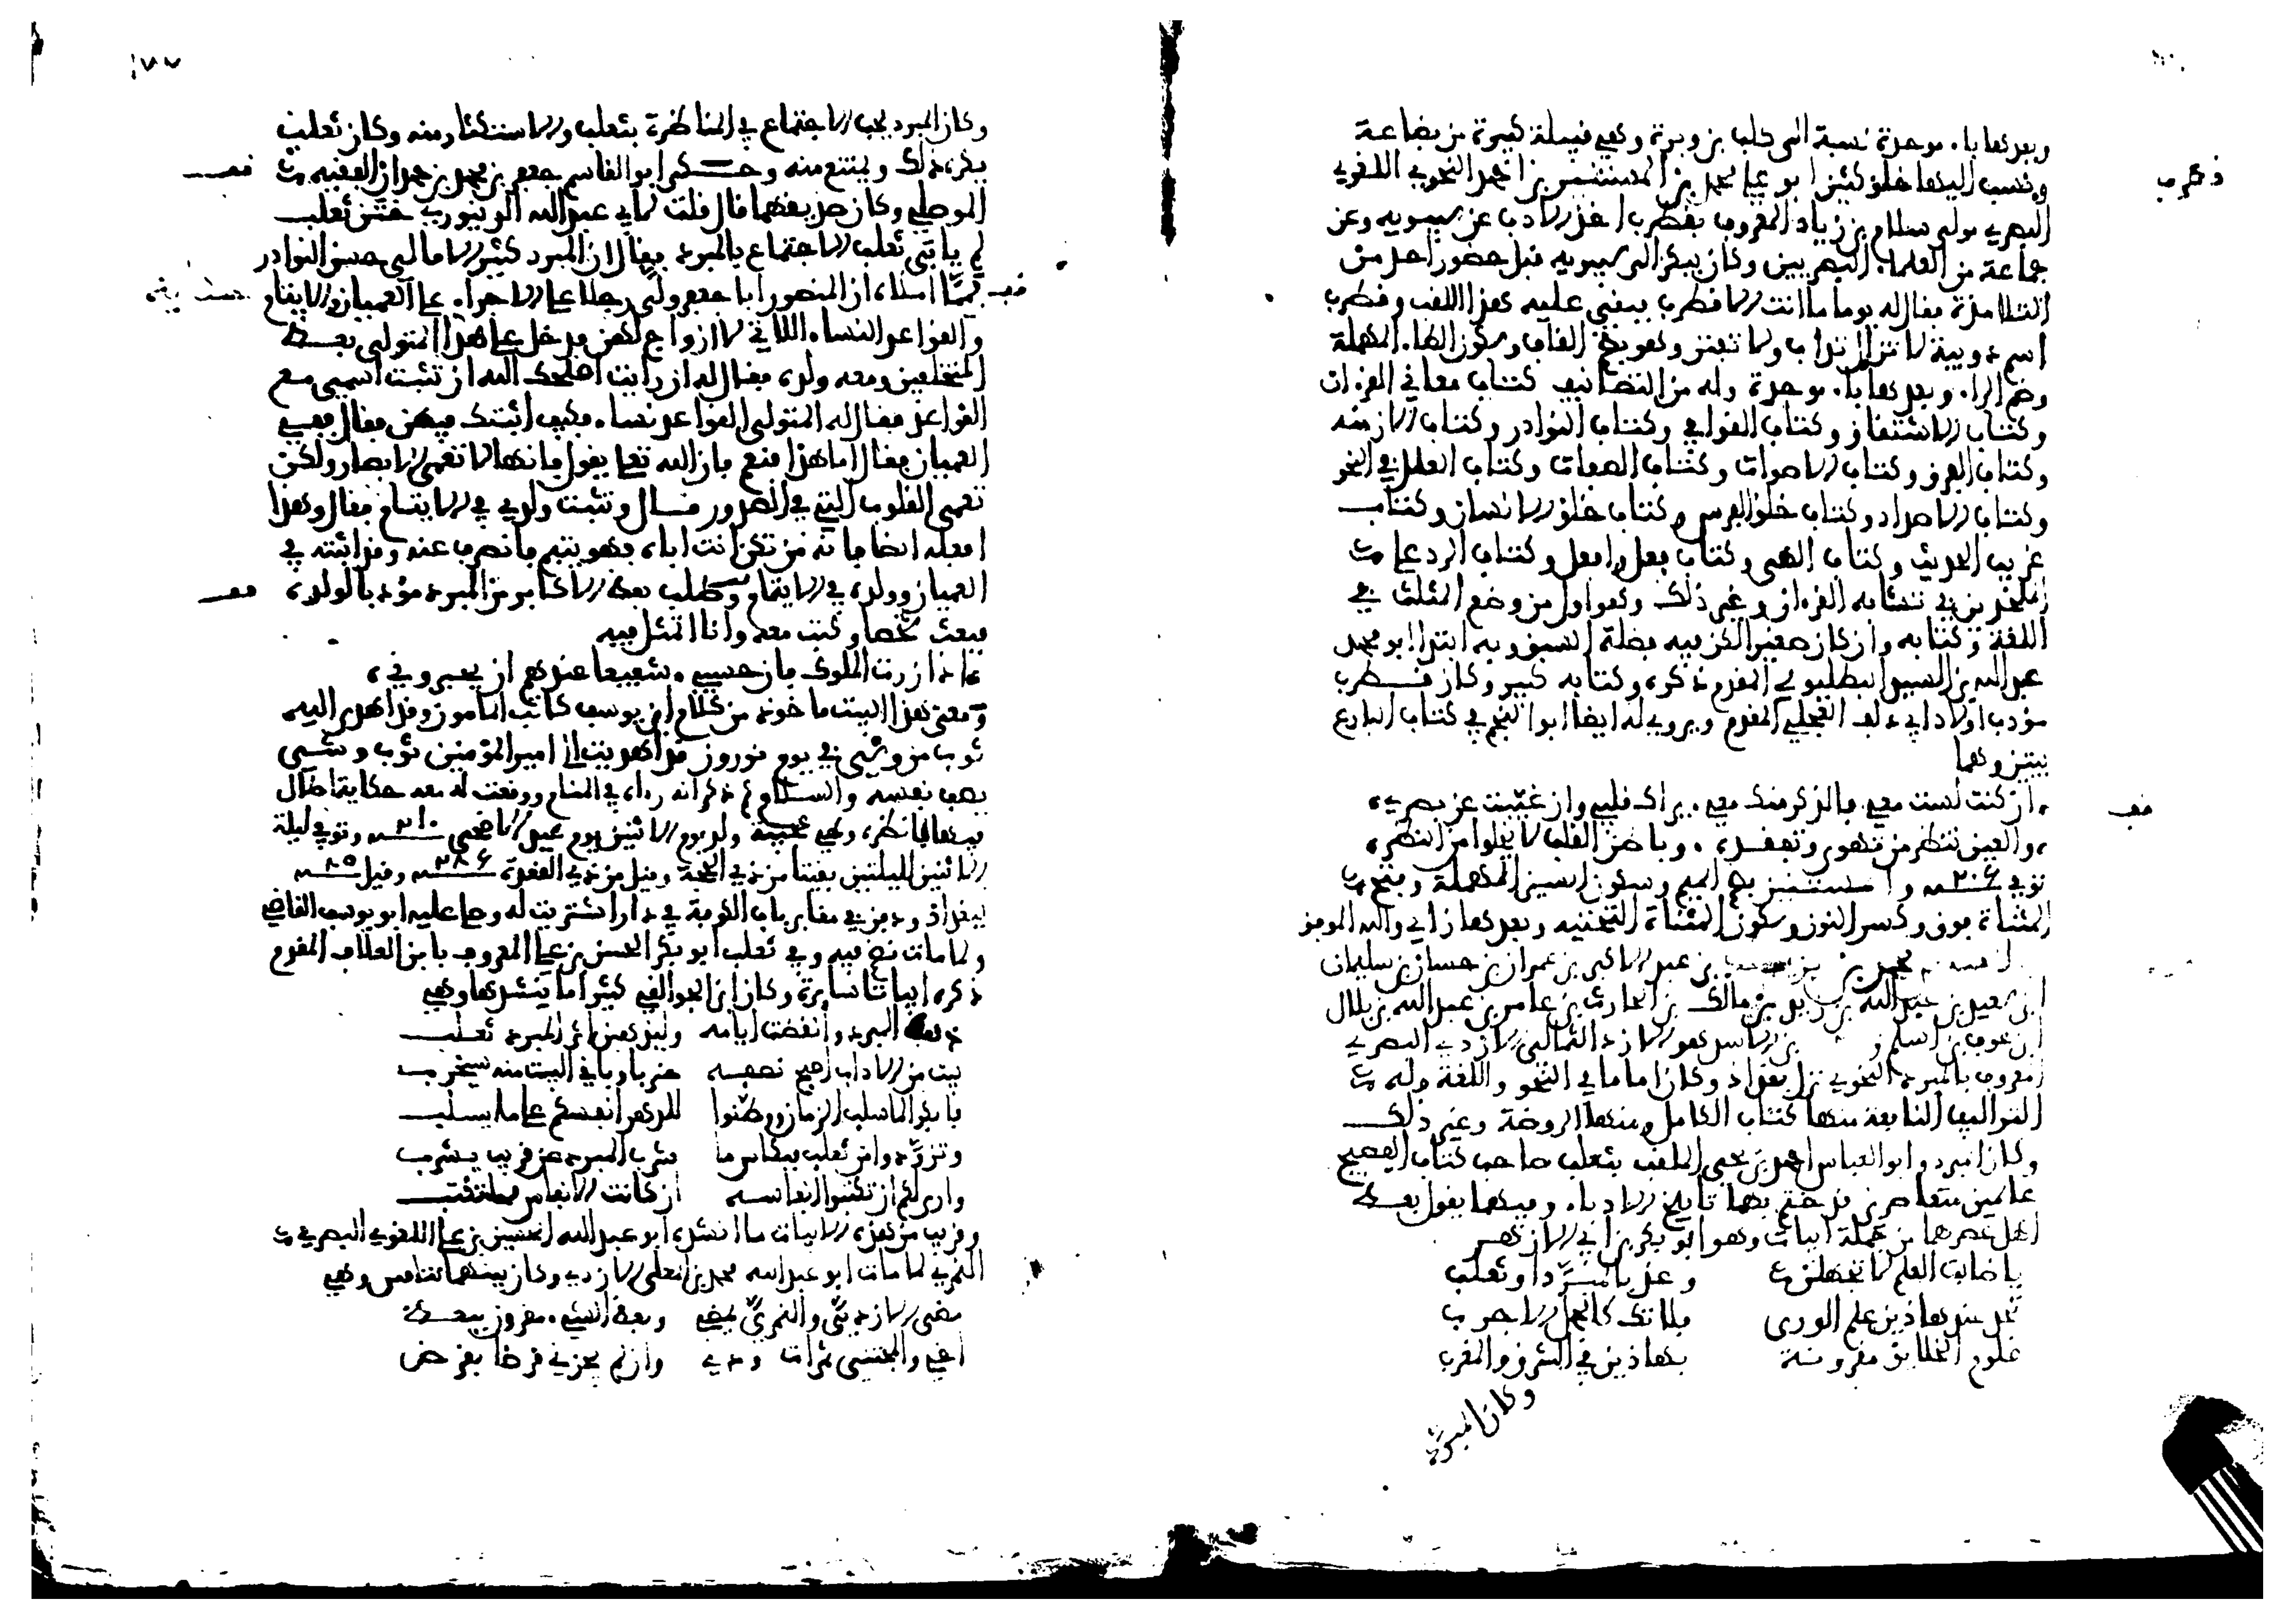 وبعدها باء موحدة نسبة الى كلب بن وبرة وهي قبيلة كبيرة من قضاعة
وينسب اليها خلق كثير ابو علي محمد بن المستنير بن احمد النحوي اللغوي
البصري مولى سلام بن زياد المعروف بقطرب اخذ الادب عن سيبويه وعن
جماعة من العلماء البصريين وكان يبكر الى سيبويه قبل حضور احد من
التلامذة فقال له يوما ما انت الا قطرب فبقي عليه هذا اللقب وقطرب
اسم دويبة لا تزال تداب ولا تفتر وهو بضم القاف وسكون الطاء المهملة
وضم الراء وبعدها باء موحدة وله من التصانيف كتاب معاني القرءان
وكتاب الاشتقاق وكتاب القوافي وكتاب النوادر وكتاب الازمنه
وكتاب الفرق وكتاب الاصوات وكتاب الصفات وكتاب العلل في النحو
وكتاب الاضداد وكتاب خلق الفرس وكتاب خلق الانسان وكتاب
غريب الحديث وكتاب الهمز وكتاب فعل وافعل وكتاب الرد على
الملحدين في تشابه القرءان وغير ذلك وهو اول من وضع المثلث في
اللغة وكتابه وان كان صغيرا لكن فيه فضلة السبق وبه اقتدا ابو محمد
عبد الله بن السيد البطليوسي المقدم ذكره وكتابه كبير وكان قطرب
مؤدب اولاد ابي دلف العجلي المقدم ويروى له ايضا ابو النجم في كتاب البارع
بيتين وهما
ان كنت لست معي فالذكر منك معي يراك قلبي وان غيبت عن بصري
والعين تنظر من تهوى وتفقده وباطن القلب لا يخلوا من النظر
توفي ٢٠٦ والمستنير بضم الميم وسكون السين المهملة وفتح
المثناة فوق وكسر النون وسكون المثناة التحتيه وبعدها راي والله الموفق
محمد بن يزيد بن عبد الاكبر بن عمران بن حسان بن سليمان
ابن سعيد بن عبد الله بن زيد بن مالك بن الحارث بن عامر بن عبد الله بن بلال
ابن عوف بن اسلم وهو الازد الثمالي الازدي البصري
المعروف بالمبرد النحوي نزل بغداد وكان اماما في النحو واللغة وله
التواليف النافعة منها كتاب الكامل ومنها الروضة وغير ذلك
وكان المبرد وابو العباس احمد بن يحيى الملقب بثعلب صاحب كتاب الفصيح
عالمين متعاصرين قد ختم بهما تاريخ الادباء وفيهما يقول بعض
اهل عصرهما من جملة ابيات وهو ابو بكر بن ابي الازهر
يا طالب العلم لا تجهلن وعذ بالمبرد او ثعلب
تجد عند هاذين علم الورى فلا تك كالجمل الاجرب
علوم الخلايق مقرونة بهاذين في الشرق والمغرب
وكان المبرد
١٧٧
وكان المبرد يحب الاجتماع في المناظرة بثعلب والاستكثار منه وكان ثعلب
يكره ذلك ويمتنع منه وحكى ابو القاسم جعفر بن محمد بن حمدان الفقيه
الموصلي وكان صديقهما قال قلت لابي عبد الله الدينوري ختن ثعلب
لم يابى ثعلب الاجتماع بالمبرد فقال ان المبرد كثير الامالي حسن النوادر
فمما املاه ان المنصور ابا جعفر ولى رجلا على الاجراء على العميان والايتام
والقواعد النساء اللاتي لا ازواج لهن فدخل على هذا المتولى بعض
المتخلفين ومعه ولده فقال له ان رايت اصلحك الله ان تثبت اسمي مع
القواعد فقال له المتولى القواعد نساء فكيف اثبتك فيهن فقال ففي
العميان فقال اما هذا فنعم فان الله تعالى يقول فانها لا تعمى الابصار ولكن
تعمى القلوب التي في الصدور فقال وتثبت ولدي في الايتام فقال وهذا
افعله ايضا فانه من تكن انت اباه فهو يتيم فانصرف عنه وقد اثبته في
العميان وولده في الايتام وطلب بعض الاكابر من المبرد مؤدبا لولده
فبعث شخصا وكتب معه وانا اتمثل فيه
اذا زرت الملوك فان حسبي شفيعا عندهم ان يخبروني
ومعنى هذا البيت ماخوذ من كلام ابن يوسف كاتب المامون وقد اهدى اليه
ثوب من وشي في يوم نوروز قد اهديت الى امير المؤمنين ثوب وشي
يصف نفسه والسلام ثم ذكر انه رءاه في المنام ووقعت له معه حكاية اطال
فيها فانظره وهي عجيبة ولد يوم الاثنين يوم عيد الاضحى ٢١٠ وتوفي ليلة
الاثنين لليلتين بقيتا من ذي الحجة وقيل من ذي القعدة ٢٨٦ وقيل ٨٥
ببغداد ودفن في مقابر باب الكوفة في دار اشتريت له وصلى عليه ابو يوسف القاضي
ولما مات نظم فيه وفي ثعلب ابو بكر الحسن بن علي المعروف بابن العلاف المقدم
ذكره ابياتا سايرة وكان ابن الجواليقي كثيرا ما ينشدها وهي
ذهب المبرد وانقضت ايامه وليذهبن اثر المبرد ثعلب
بيت من الاداب اصبح نصفه خربا وباقي البيت منه سيخرب
فابكوا لما سلب الزمان ووطنوا للدهر انفسكم على ما يسلب
وتزودوا من ثعلب فبكاس ما شرب المبرد عن قريب يشرب
وارى لكم ان تكتبوا انفاسه ان كانت الانفاس مما تكتب
وقريب من هذه الابيات ما انشده ابو عبد الله الحسين بن علي اللغوي البصري
النمري لما مات ابو عبد الله محمد بن المعلى الازدي وكان بينهما تنافس وهي
مضى الازدي والنمري يمضي وبعض الشيء مقرون ببعض
اخي والمجتني ثمرات ودي وان لم يجزني قرضا بقرض